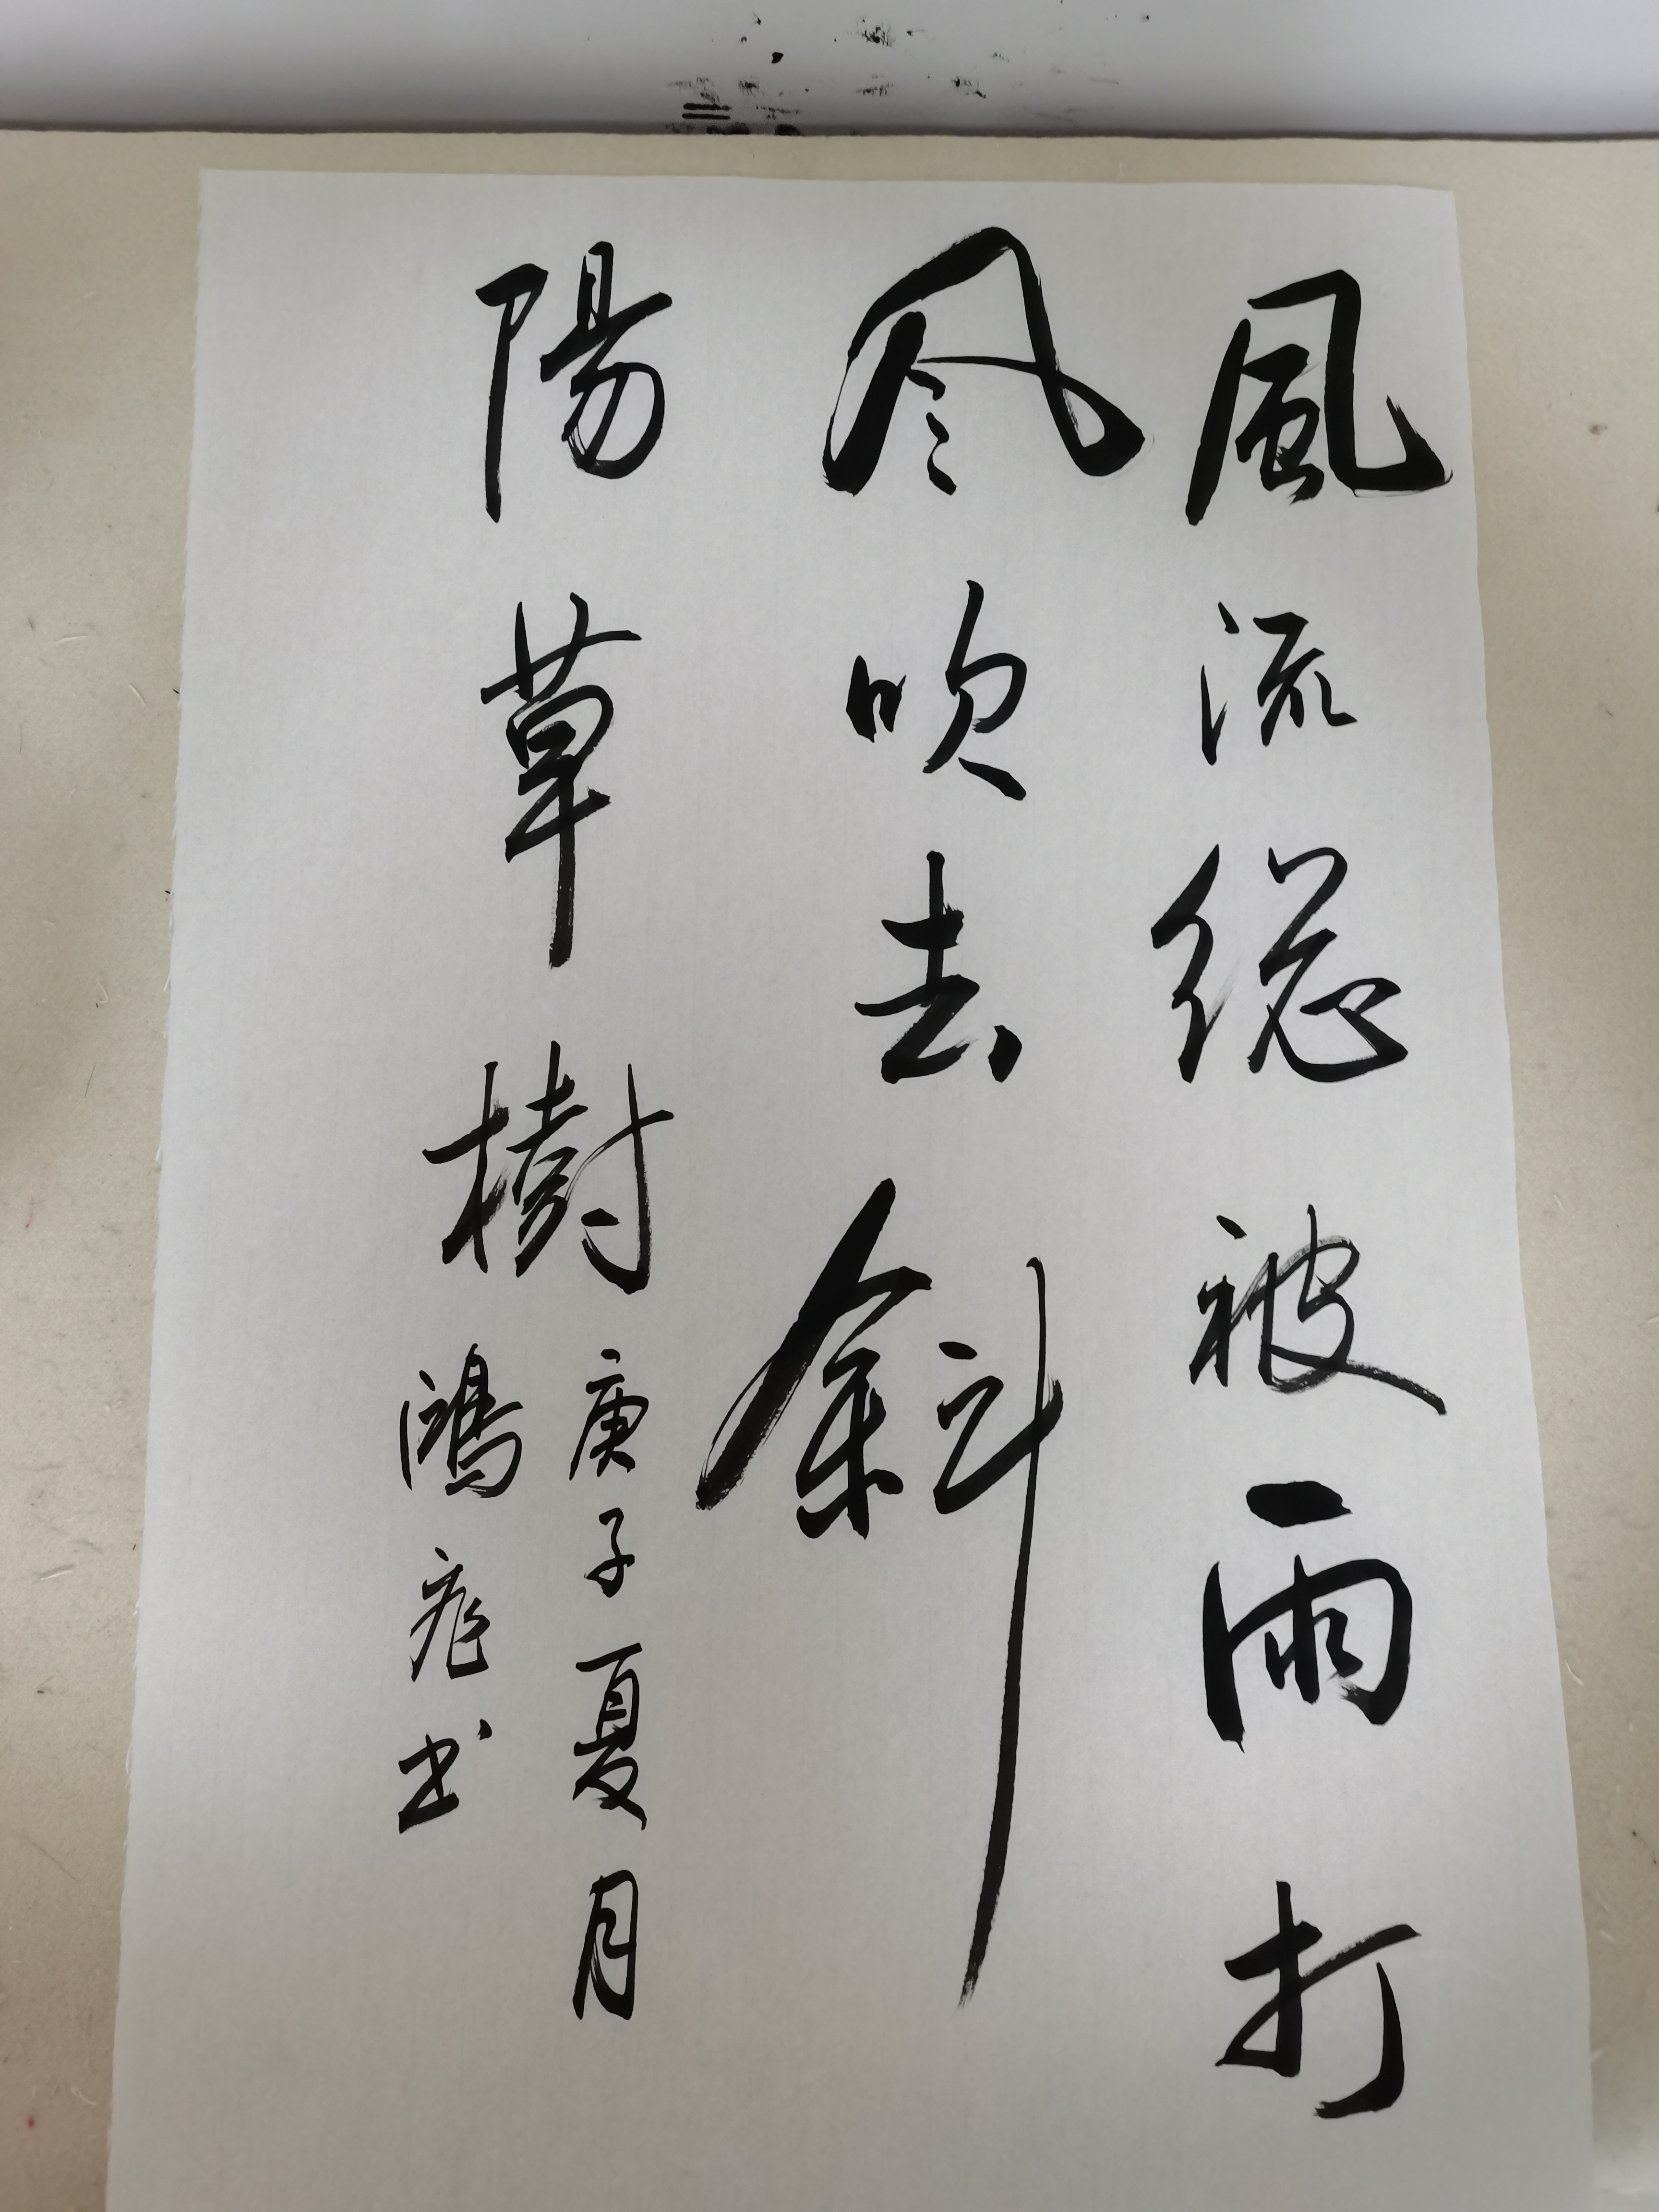 風流總被雨打
風吹去斜
陽草樹
庚子夏月
鴻書